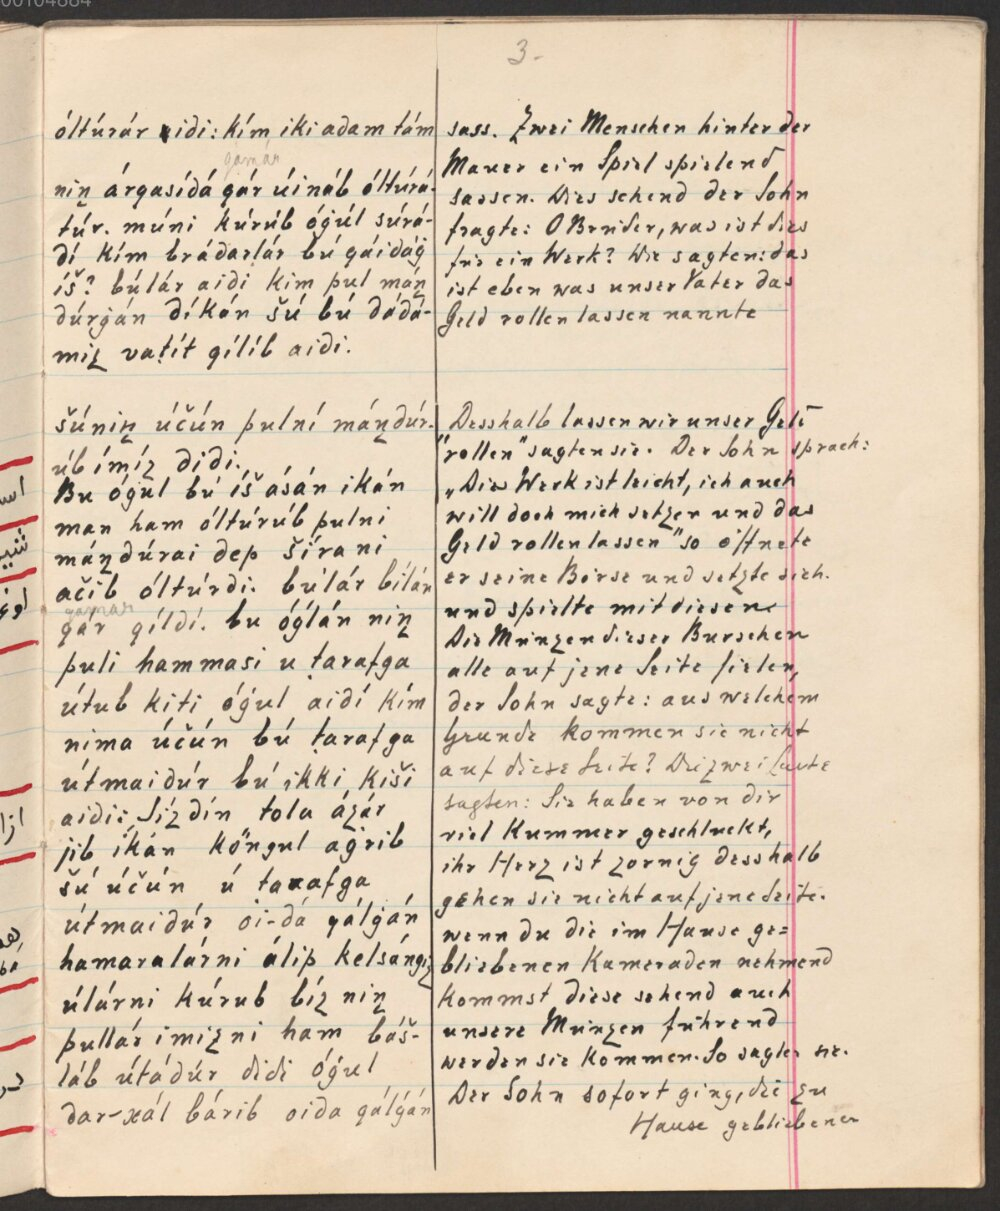 00104884
3-
óltúrár idi: kím iki adam tám
gamár
niꞑ árgasídá gár úináb óltúrá-
túr. múni kúrúb ógúl súrá-
dí kím brádarlár bú gáidág
íš? búlár aidi kim pul máꞑ
dúrgán díkán šú bú dádá-
miz vatít gílíb aidi.
šúniꞑ účún pulní máꞑdúr-
úb ímíz didi.
Bu ógul bú íš asán ikán
man ham óltúrúb pulni
máꞑdúrai dep šírani
ačib óltúrdi. búlár bílán
gamar
gár gíldí. bu óglán niꞑ
puli hammasi u tarafga
útub kiti ógul aidí kím
nima účún bú tarafga
útmaidúr bú ikki kiši
aidi: Síz dín tola ázár
jib íkán köngul agrib
šú účún ú tarafga
útmaidúr oi-dá qálgán
hamaralárni álip kelsángiz
úlárni kúrub bíz niꞑ
pullár imizni ham báš-
láb útádúr didi ógul
dar-xál bárib oida qálgán
sass. Zwei Menschen hinter der
Mauer ein Spiel spielend
sassen. Dies sehend der Sohn
fragte: O Brüder, was ist dies
für ein Werk? Die sagten: das
ist eben was unser Vater das
Geld rollen lassen nannte
Desshalb lassen wir unser Geld
"rollen" sagten sie. Der Sohn sprach:
„Dies Werk ist leicht, ich auch
will doch mich setzen und das
Geld rollen lassen" so öffnete
er seine Börse und setzte sich.
und spielte mit diesen.
Die Münzen dieser Burschen
alle auf jene Seite fielen,
der Sohn sagte: aus welchem
Grunde kommen sie nicht
auf diese Seite? Die zwei Leute
sagten: Sie haben von dir
viel Kummer geschluckt,
ihr Herz ist zornig desshalb
gehen sie nicht auf jene Seite.
wenn du die im Hause ge=
bliebenen Kameraden nehmend
kommst, diese sehend auch
unsere Münzen führend
werden sie kommen. So sagten sie.
Der Sohn sofort ging, die zu
Hause gebliebenen